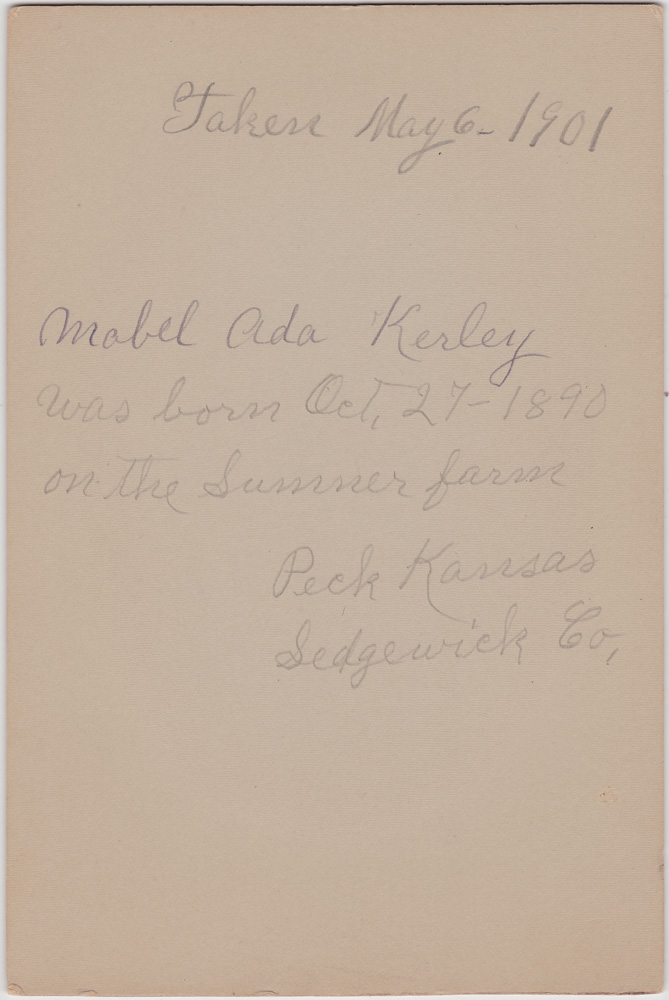 Taken May 6-1901
Mabel Ada Kerley
was born Oct, 27-1890
on the Sumner farm
Peck Kansas
Sedgewick Co,